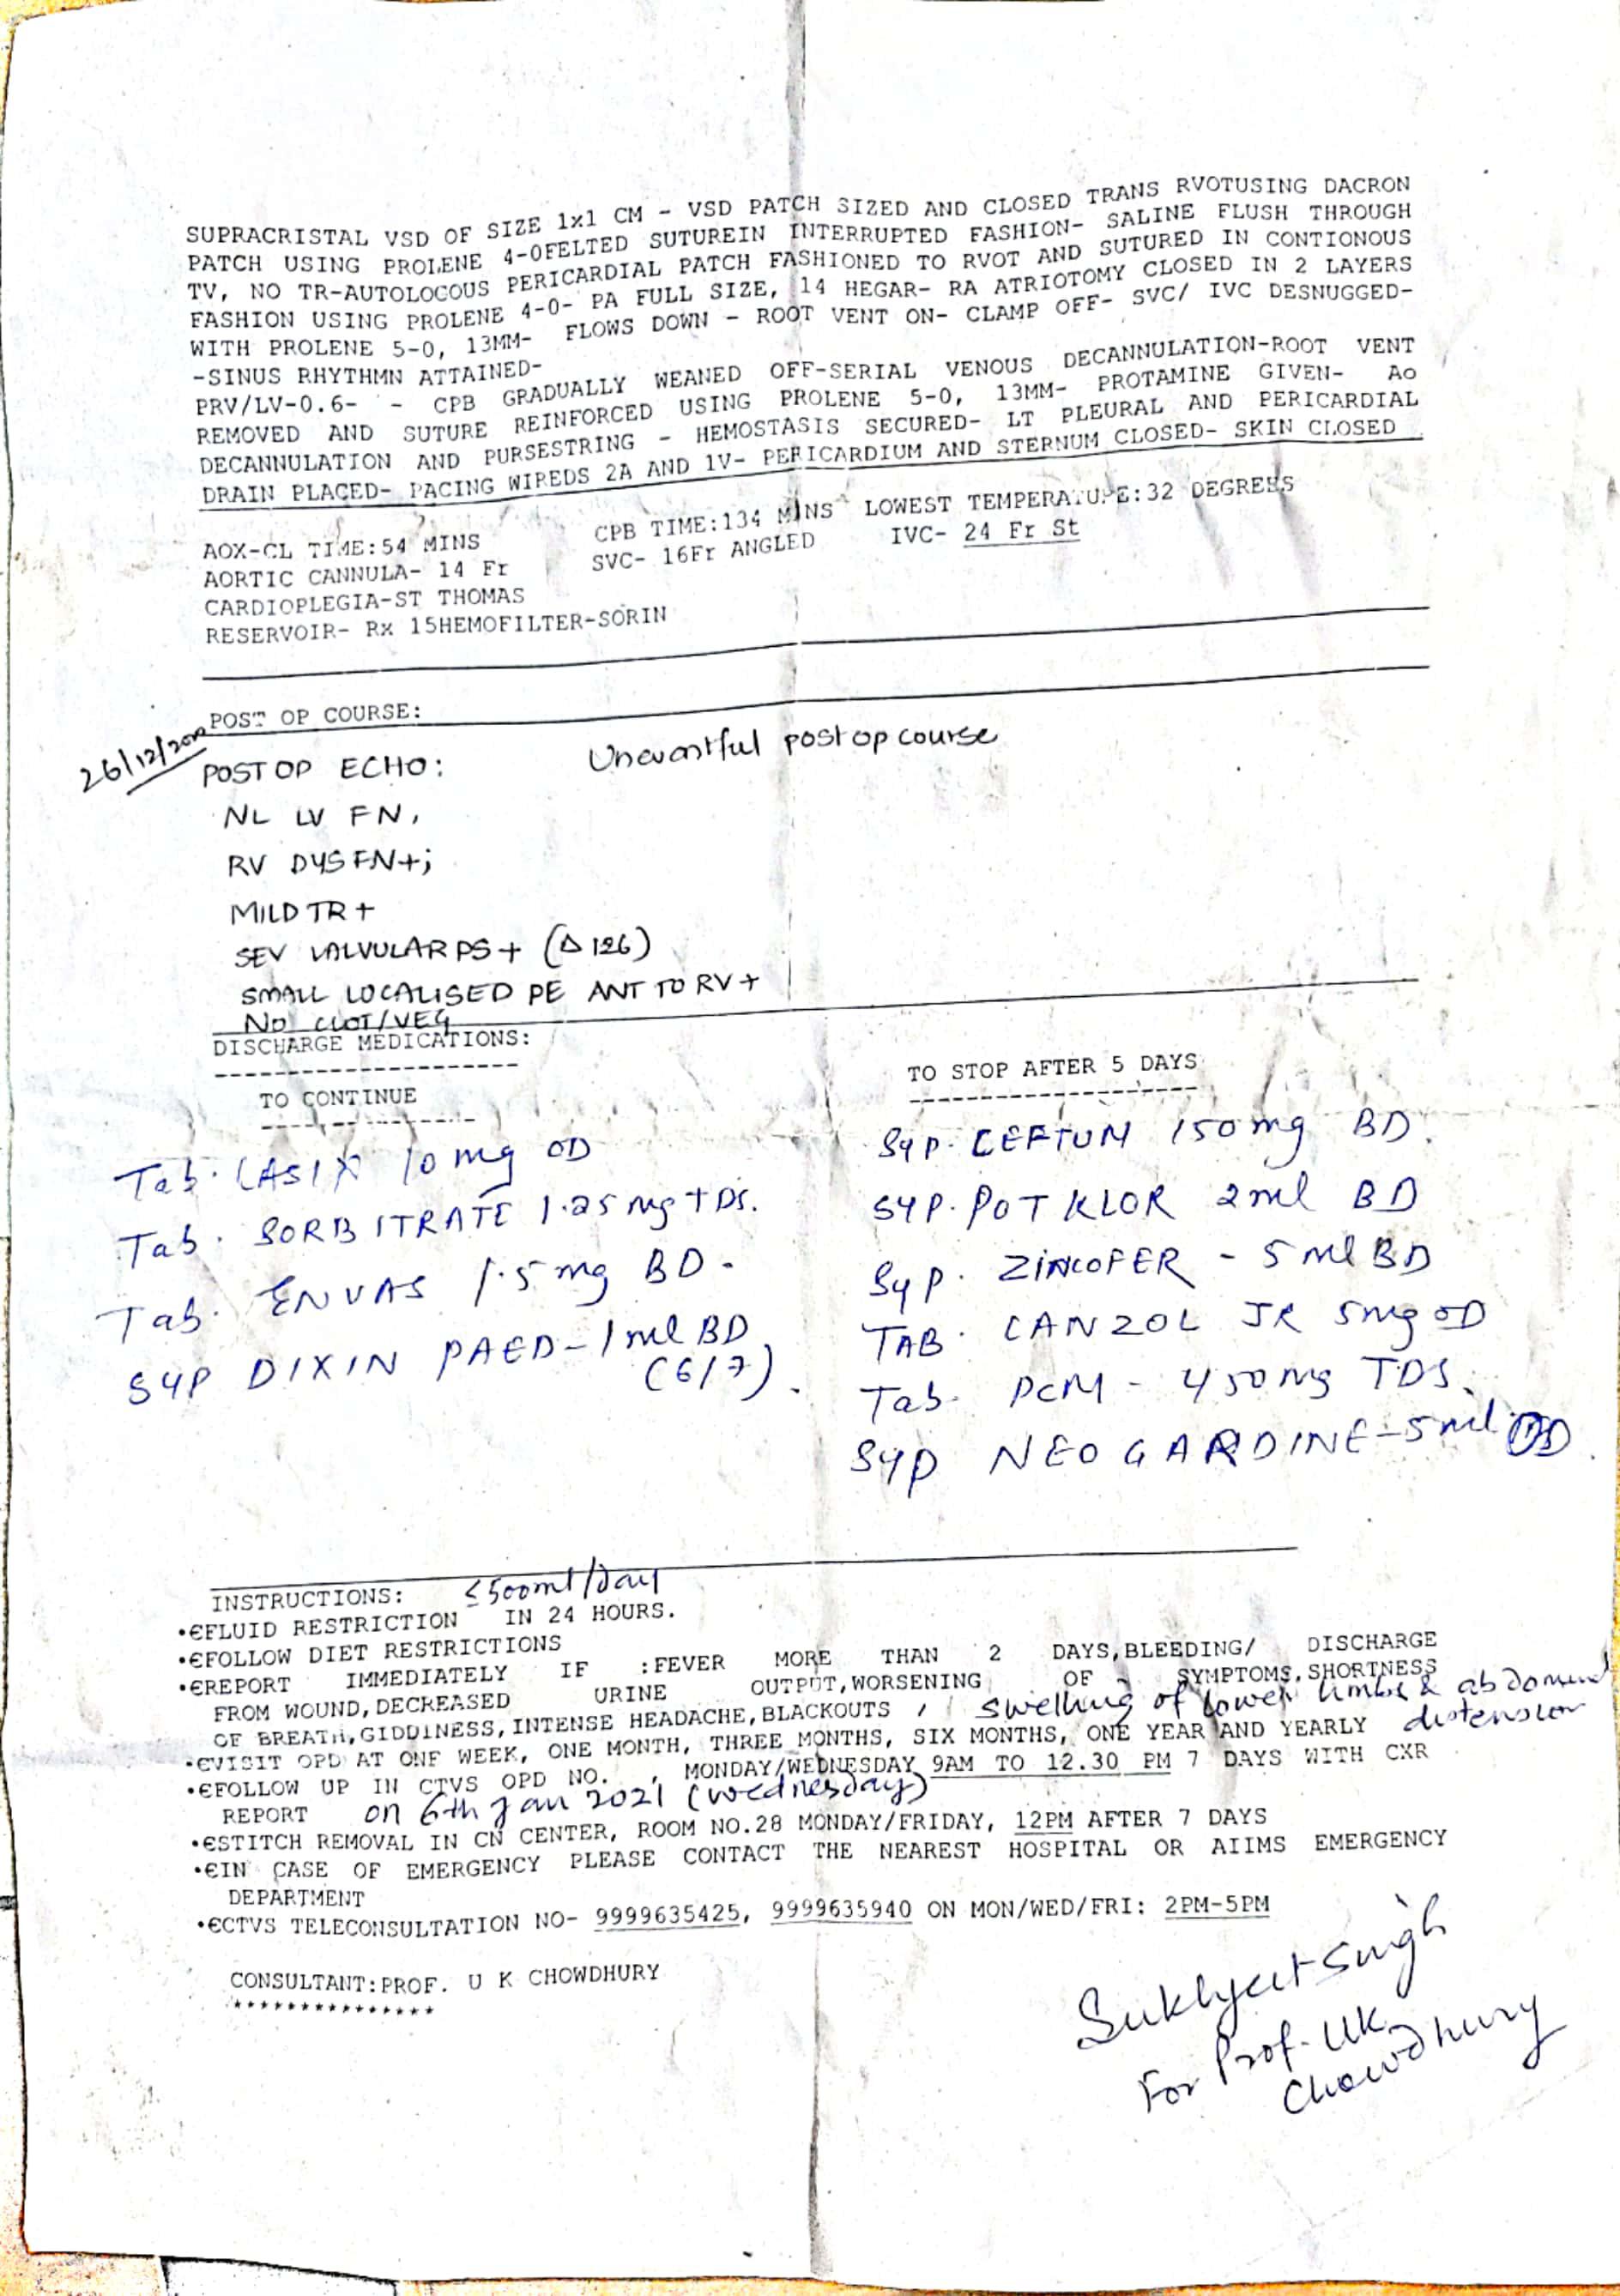 SUPRACRISTAL VSD OF SIZE 1x1 CM - VSD PATCH SIZED AND CLOSED TRANS RVOTUSING DACRON
PATCH USING PROLENE 4-0FELTED SUTUREIN INTERRUPTED FASHION- SALINE FLUSH THROUGH
TV, NO TR-AUTOLOCOUS PERICARDIAL PATCH FASHIONED TO RVOT AND SUTURED IN CONTIONOUS
FASHION USING PROLENE 4-0- PA FULL SIZE, 14 HEGAR- RA ATRIOTOMY CLOSED IN 2 LAYERS
WITH PROLENE 5-0, 13MM- FLOWS DOWN - ROOT VENT ON- CLAMP OFF- SVC/ IVC DESNUGGED-
-SINUS RHYTHMN ATTAINED-
PRV/LV-0.6- - CPB GRADUALLY WEANED OFF-SERIAL VENOUS DECANNULATION-ROOT VENT
REMOVED AND SUTURE REINFORCED USING PROLENE 5-0, 13MM- PROTAMINE GIVEN- Ao
DECANNULATION AND PURSESTRING - HEMOSTASIS SECURED- LT PLEURAL AND PERICARDIAL
DRAIN PLACED- PACING WIREDS 2A AND 1V- PERICARDIUM AND STERNUM CLOSED- SKIN CLOSED
AOX-CL TIME:54 MINS CPB TIME:134 MINS LOWEST TEMPERATURE:32 DEGREES
AORTIC CANNULA- 14 Fr SVC- 16Fr ANGLED IVC- 24 Fr St
CARDIOPLEGIA-ST THOMAS
RESERVOIR- Rx 15HEMOFILTER-SORIN
POST OP COURSE:
26/12/2020
POST OP ECHO: Uneventful post op course
NL LV FN,
RV DYSFN+;
MILD TR+
SEV VALVULAR PS+ (Δ 126)
SMALL LOCALISED PE ANT TO RV+
NO CLOT/VEG
DISCHARGE MEDICATIONS:
TO CONTINUE
Tab. LASIX 10 mg OD
Tab. SORBITRATE 1.25 mg TDS.
Tab. ENVAS 1.5 mg BD.
SYP DIXIN PAED-1 ml BD
(6/7).
TO STOP AFTER 5 DAYS
Syp. CEFTUM 150 mg BD.
SYP. POT KLOR 2 ml BD
Syp. ZINCOFER - 5 ml BD
TAB. LANZOL JR 5mg OD
Tab. PCM - 450 mg TDS.
Syp NEOGARDINE-5 ml
INSTRUCTIONS: ≤500ml/day
•€FLUID RESTRICTION IN 24 HOURS.
•€FOLLOW DIET RESTRICTIONS
•€REPORT IMMEDIATELY IF :FEVER MORE THAN 2 DAYS,BLEEDING/ DISCHARGE
FROM WOUND,DECREASED URINE OUTPUT,WORSENING OF SYMPTOMS,SHORTNESS
OF BREATH,GIDDINESS,INTENSE HEADACHE,BLACKOUTS , swelling of lower limbs & abdominal distension
•€VISIT OPD AT ONE WEEK, ONE MONTH, THREE MONTHS, SIX MONTHS, ONE YEAR AND YEARLY
•€FOLLOW UP IN CTVS OPD NO. , MONDAY/WEDNESDAY 9AM TO 12.30 PM 7 DAYS WITH CXR
REPORT on 6th Jan 2021 (wednesday)
•€STITCH REMOVAL IN CN CENTER, ROOM NO.28 MONDAY/FRIDAY, 12PM AFTER 7 DAYS
•€IN CASE OF EMERGENCY PLEASE CONTACT THE NEAREST HOSPITAL OR AIIMS EMERGENCY
DEPARTMENT
•€CTVS TELECONSULTATION NO- 9999635425, 9999635940 ON MON/WED/FRI: 2PM-5PM
CONSULTANT:PROF. U K CHOWDHURY
***************
Sukhjeet Singh
For Prof. UK
Chowdhury